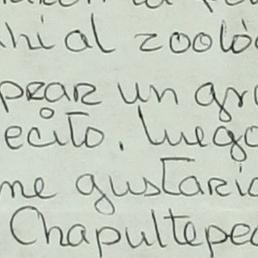 hi al zooló
prar un gr
ecito. luego
me gustaric
Chapultepec